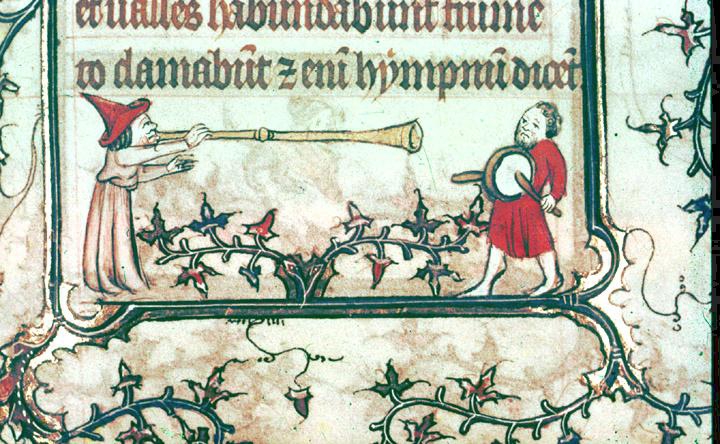 et ualles habundabunt frume
to clamabūt ⁊ enī hẏmpnū dicēt